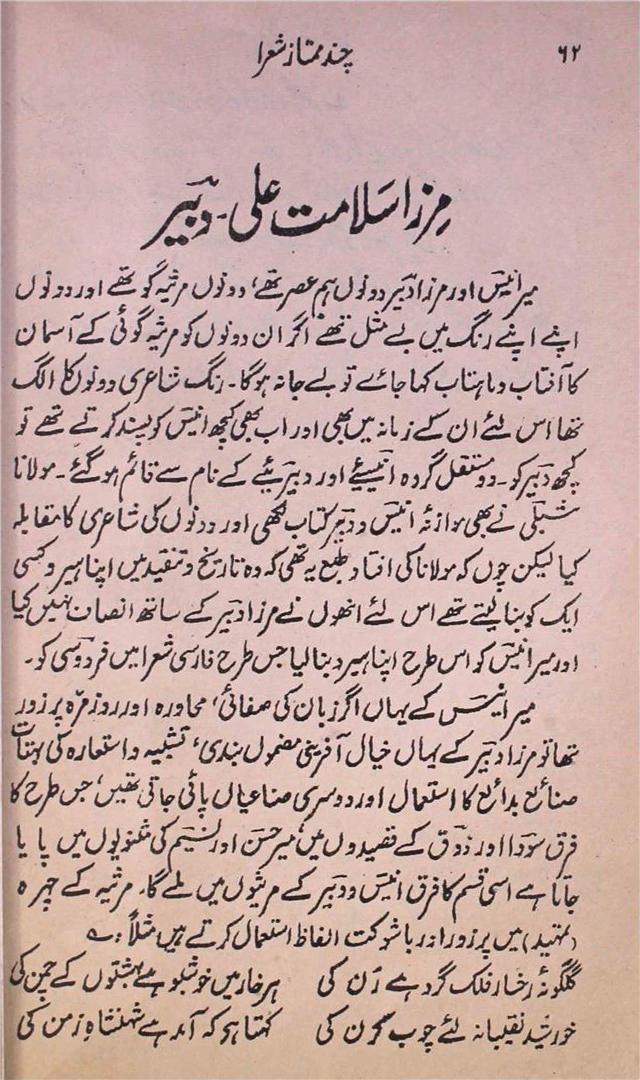 ۶۲ چند ممتاز شعرا
مرزا سلامت علی۔ دبیر
میر انیس اور مرزا دبیر دونوں ہم عصر تھے، دونوں مرثیہ گو تھے اور دونوں
اپنے اپنے رنگ میں بے مثل تھے اگر ان دونوں کو مرثیہ گوئی کے آسمان
کا آفتاب و ماہتاب کہا جائے تو بے جانہ ہوگا۔ رنگ شاعری دونوں کا الگ
تھا اس لئے ان کے زمانہ میں بھی اور اب بھی کچھ انیس کو پسند کرتے تھے تو
کچھ دبیر کو۔ دو مستقل گروہ انیسیئے اور دبیریئے کے نام سے قائم ہو گئے۔ مولانا
شبلی نے بھی موازنۂ انیس و دبیر کتاب لکھی اور دونوں کی شاعری کا مقابلہ
کیا لیکن چوں کہ مولانا کی افتاد طبع یہ تھی کہ وہ تاریخ و تنقید میں اپنا ہیرو کسی
ایک کو بنا لیتے تھے اس لئے انھوں نے مرزا دبیر کے ساتھ انصاف نہیں کیا
اور میر انیس کو اس طرح اپنا ہیرو بنا لیا جس طرح فارسی شعرا میں فردوسی کو۔
میر انیس کے یہاں اگر زبان کی صفائی، محاورہ اور روزمرہ پر زور
تھا تو مرزا دبیر کے یہاں خیال آفرینی مضمون بندی، تشبیہ و استعارہ کی بہتات
صنائع بدائع کا استعمال اور دوسری صناعیاں پائی جاتی تھیں، جس طرح کا
فرق سودا اور ذوق کے قصیدوں میں، میر حسن اور نسیم کی مثنویوں میں پایا
جاتا ہے اسی قسم کا فرق انیس و دبیر کے مرثیوں میں ملے گا۔ مرثیہ کے چہرہ
(تمہید) میں پر زور اور با شوکت الفاظ استعمال کرتے ہیں مثلاً:۔
گلگونۂ رخسار فلک گرد ہے رن کی ہر خار میں خوشبو ہے بہشتوں کے چمن کی
خورشید نقیبانہ لئے چوب کرن کی کہتا ہو کہ آمد ہے شہنشاہِ زمن کی